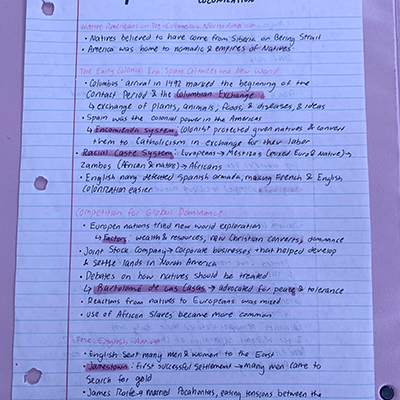 COLONIZATION
Native Americans in Pre-Columbian North America
• Natives believed to have come from Siberia on Bering Strait
• America was home to nomadic & empires of Natives
The Early Colonial Era: Spain Colonizes the New World
• Columbus' arrival in 1492 marked the beginning of the
Contact Period & the Columbian Exchange
↳ exchange of plants, animals, foods, & diseases, & ideas
• Spain was the colonial power in the Americas
↳ Encomienda system, colonist protected given natives & convert
them to Catholicism in exchange for their labor
• Racial Caste System: Europeans → Mestizos (mixed Euro & Native) →
Zambos (African & native) → Africans
• English navy defeated Spanish armada, making French & English
colonization easier
Competition for Global Dominance
• Europen nations tried new world exploration
↳ Factors: wealth & resources, new Christian converts, dominance
• Joint Stock Company → corporate businesses that helped develop
& settle lands in North America
• Debates on how natives should be treated
↳ Bartolome de Las Casas → advocated for peace & tolerance
• Reactions from natives to Europeans was mixed
• use of African Slaves became more common
The English Arrive
• English sent many men & women to the East
• Jamestown: first successful settlement → many men came to
search for gold
• James Rolfe → married Pocahontas, easing tensions between the